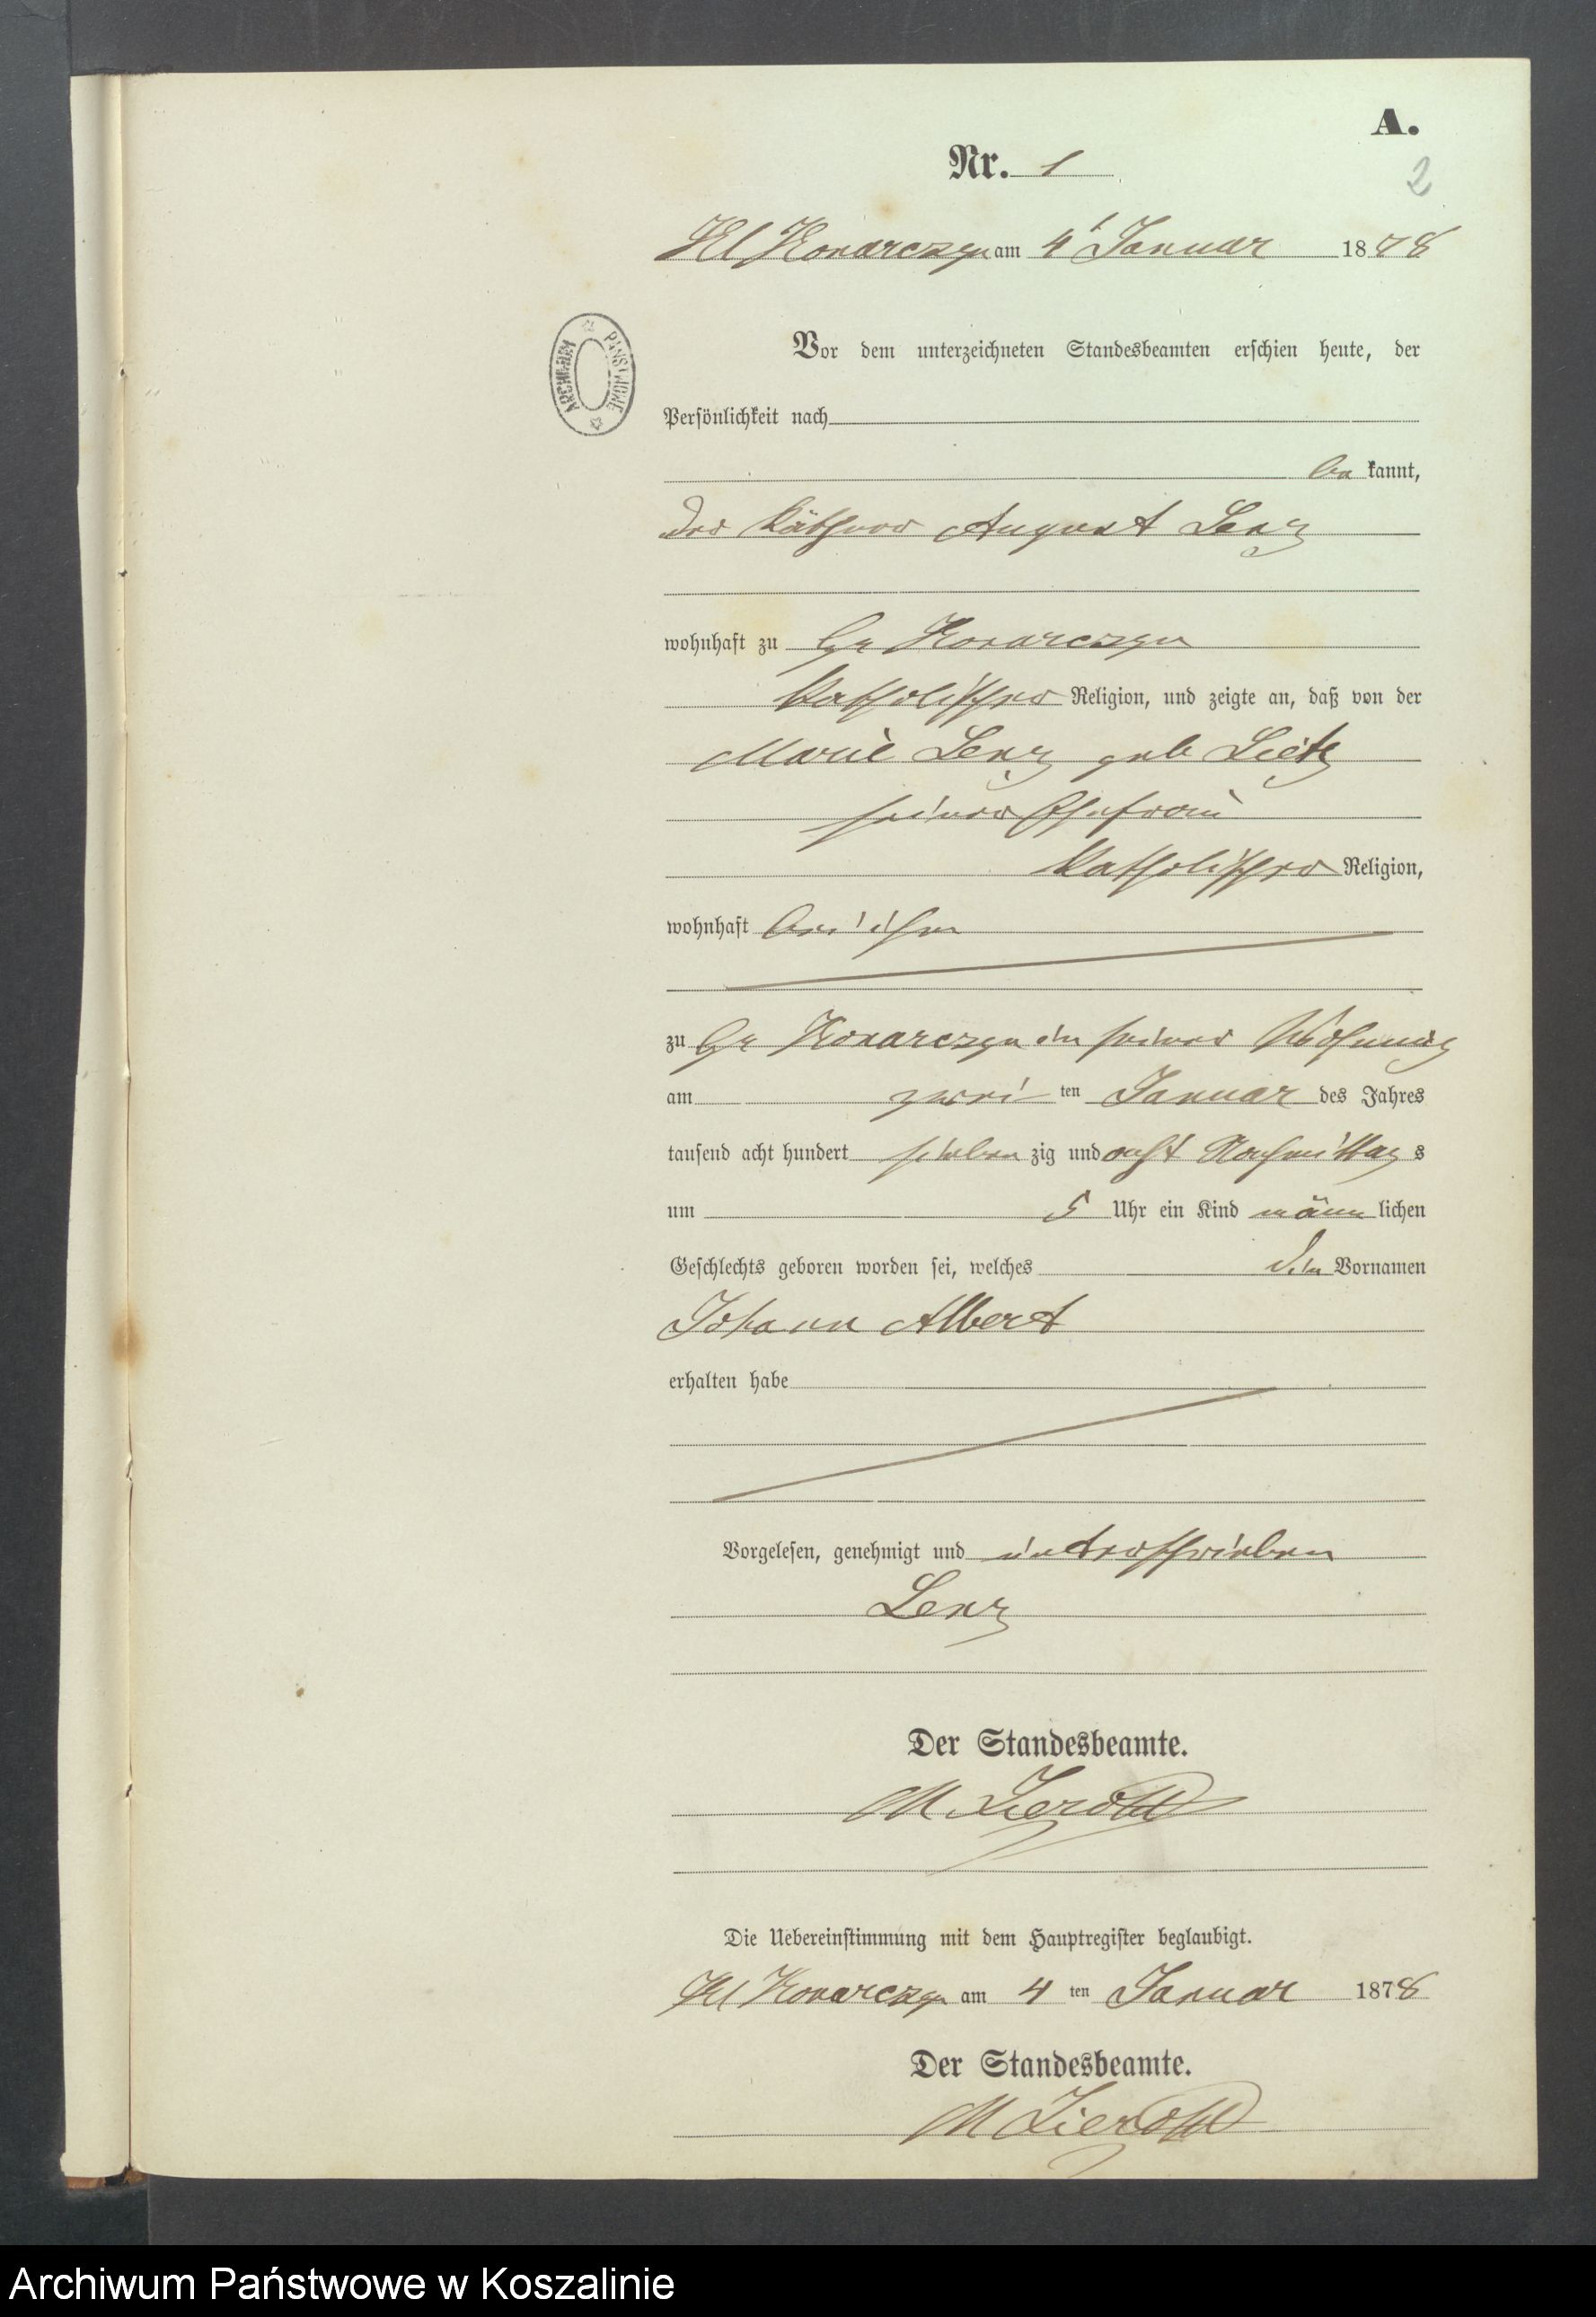 A.
Nr. 1
2
Kl Konarczyn am 4 Januar 1878
ARCHIWUM PAŃSTWOWE
Vor dem unterzeichneten Standesbeamten erschien heute, der
Persönlichkeit nach
be kannt,
der Käthner August Lenz
wohnhaft zu Gr Konarczyn
katholischer Religion, und zeigte an, daß von der
Marie Lenz geb Lietz
seiner Ehefrau
katholischer Religion,
wohnhaft bei ihm
zu Gr Konarczyn in seiner Wohnung
am zwei ten Januar des Jahres
tausend acht hundert sieben zig und acht Nachmittag s
um 5 Uhr ein Kind männ lichen
Geschlechts geboren worden sei, welches die Vornamen
Johann Albert
erhalten habe
Vorgelesen, genehmigt und unterschrieben
Lenz
Der Standesbeamte.
M
Die Uebereinstimmung mit dem Hauptregister beglaubigt.
Kl Konarczyn am 4 ten Januar 1878
Der Standesbeamte.
M
Archiwum Państwowe w Koszalinie